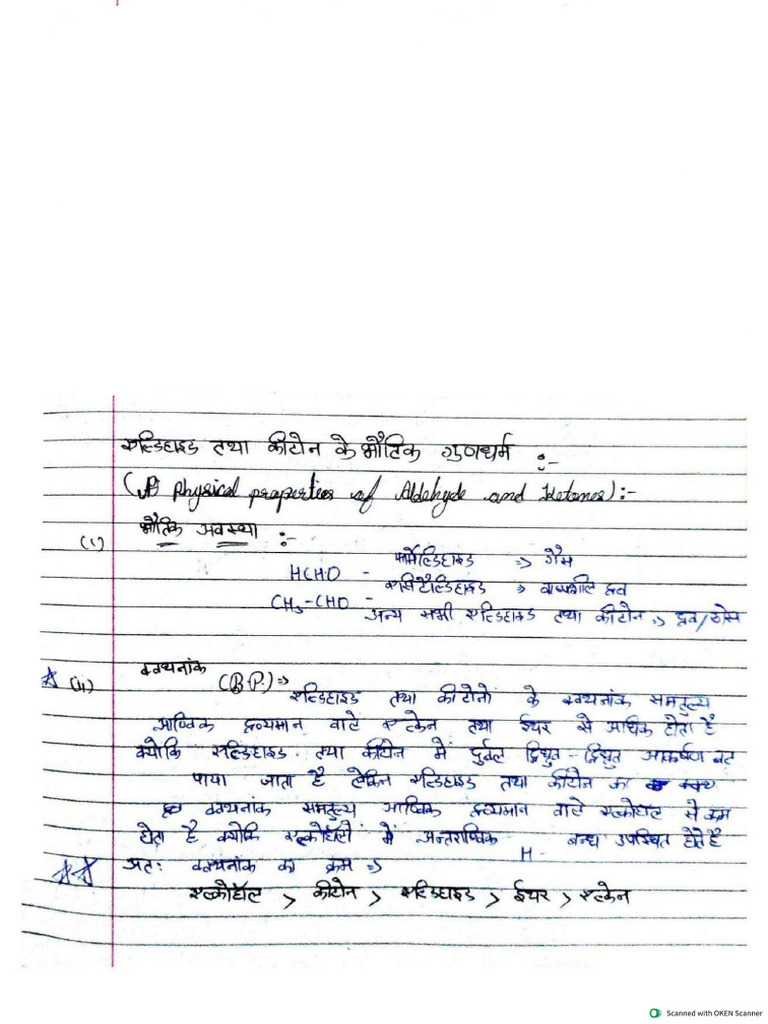 एल्डिहाइड तथा कीटोन के भौतिक गुणधर्म :-
(Physical properties of Aldehyde and Ketones):-
(i) भौतिक अवस्था :-
HCHO - फॉर्मेल्डिहाइड => गैस
CH3-CHO - एसिटैल्डिहाइड => वाष्पशील द्रव
अन्य सभी एल्डिहाइड तथा कीटोन => द्रव/ठोस
(ii) क्वथनांक (B.P.) =>
एल्डिहाइड तथा कीटोनो के क्वथनांक समतुल्य
आण्विक द्रव्यमान वाले एल्केन तथा ईथर से अधिक होता है
क्योकि एल्डिहाइड तथा कीटोन में दुर्बल द्विध्रुव-द्विध्रुव आकर्षण बल
पाया जाता है लेकिन एल्डिहाइड तथा कीटोन का
क्वथनांक समतुल्य आण्विक द्रव्यमान वाले एल्कोहॉल से कम
होता है क्योकि एल्कोहॉलों में अन्तराण्विक H- बन्ध उपस्थित होते है
अतः क्वथनांक का क्रम =>
एल्कोहॉल > कीटोन > एल्डिहाइड > ईथर > एल्केन
Scanned with OKEN Scanner